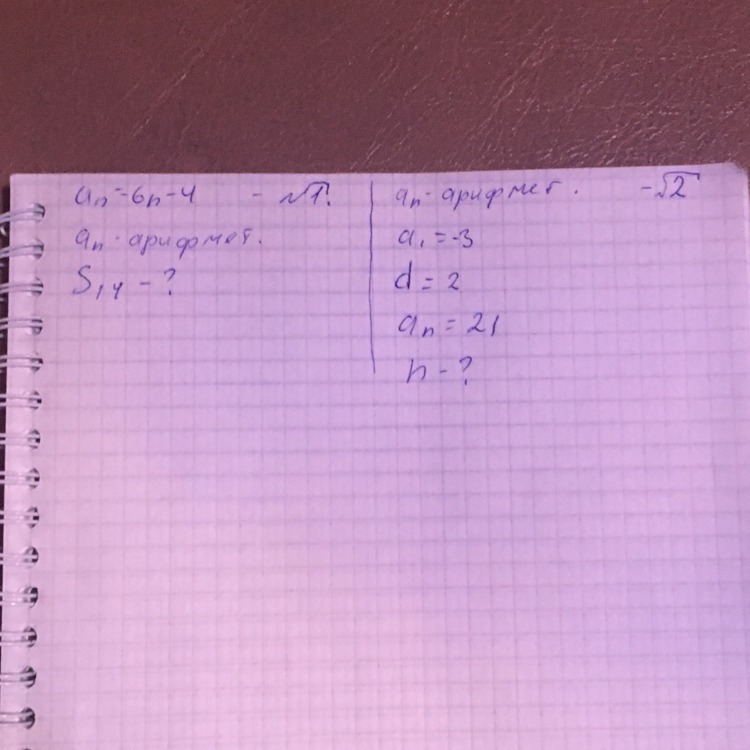 aₙ=6n-4 - √1.
aₙ - арифмет.
S₁₄ - ?
aₙ - арифмет. - √2
a₁ = -3
d = 2
aₙ = 21
n - ?